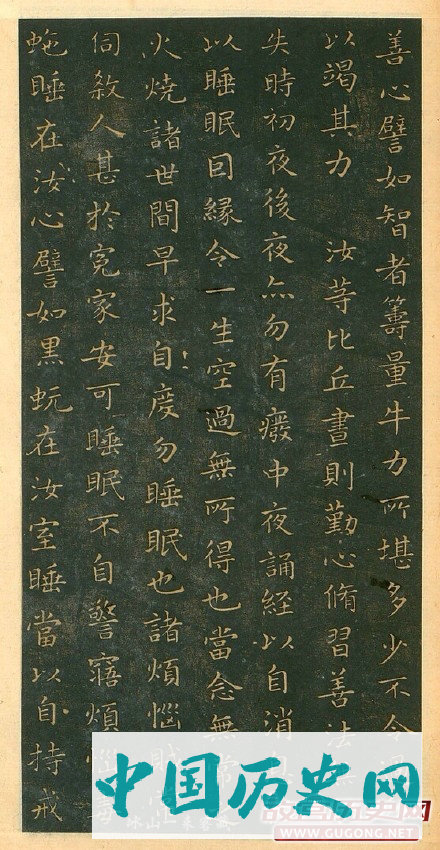 善心譬如智者籌量牛力所堪多少不令
以竭其力 汝等比丘晝則勤心脩習善法
失時初夜後夜亦勿有癈中夜誦経以自消
以睡眠因緣令一生空過無所得也當念無常
火燒諸世間早求自度勿睡眠也諸煩惱賊
伺殺人甚於寃家安可睡眠不自警寤煩惱毒
虵睡在汝心譬如黒蚖在汝室睡當以自持戒
中国历史网
故宫历史网
WWW.GUGONG.NET